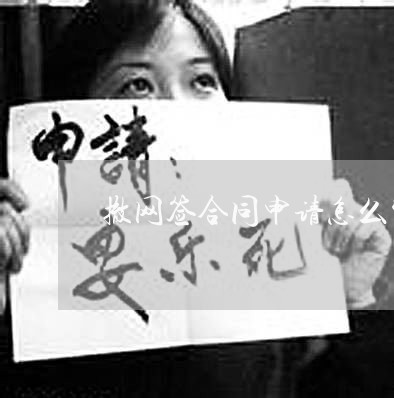 申請：
撤网签合同申请怎么
要乐死